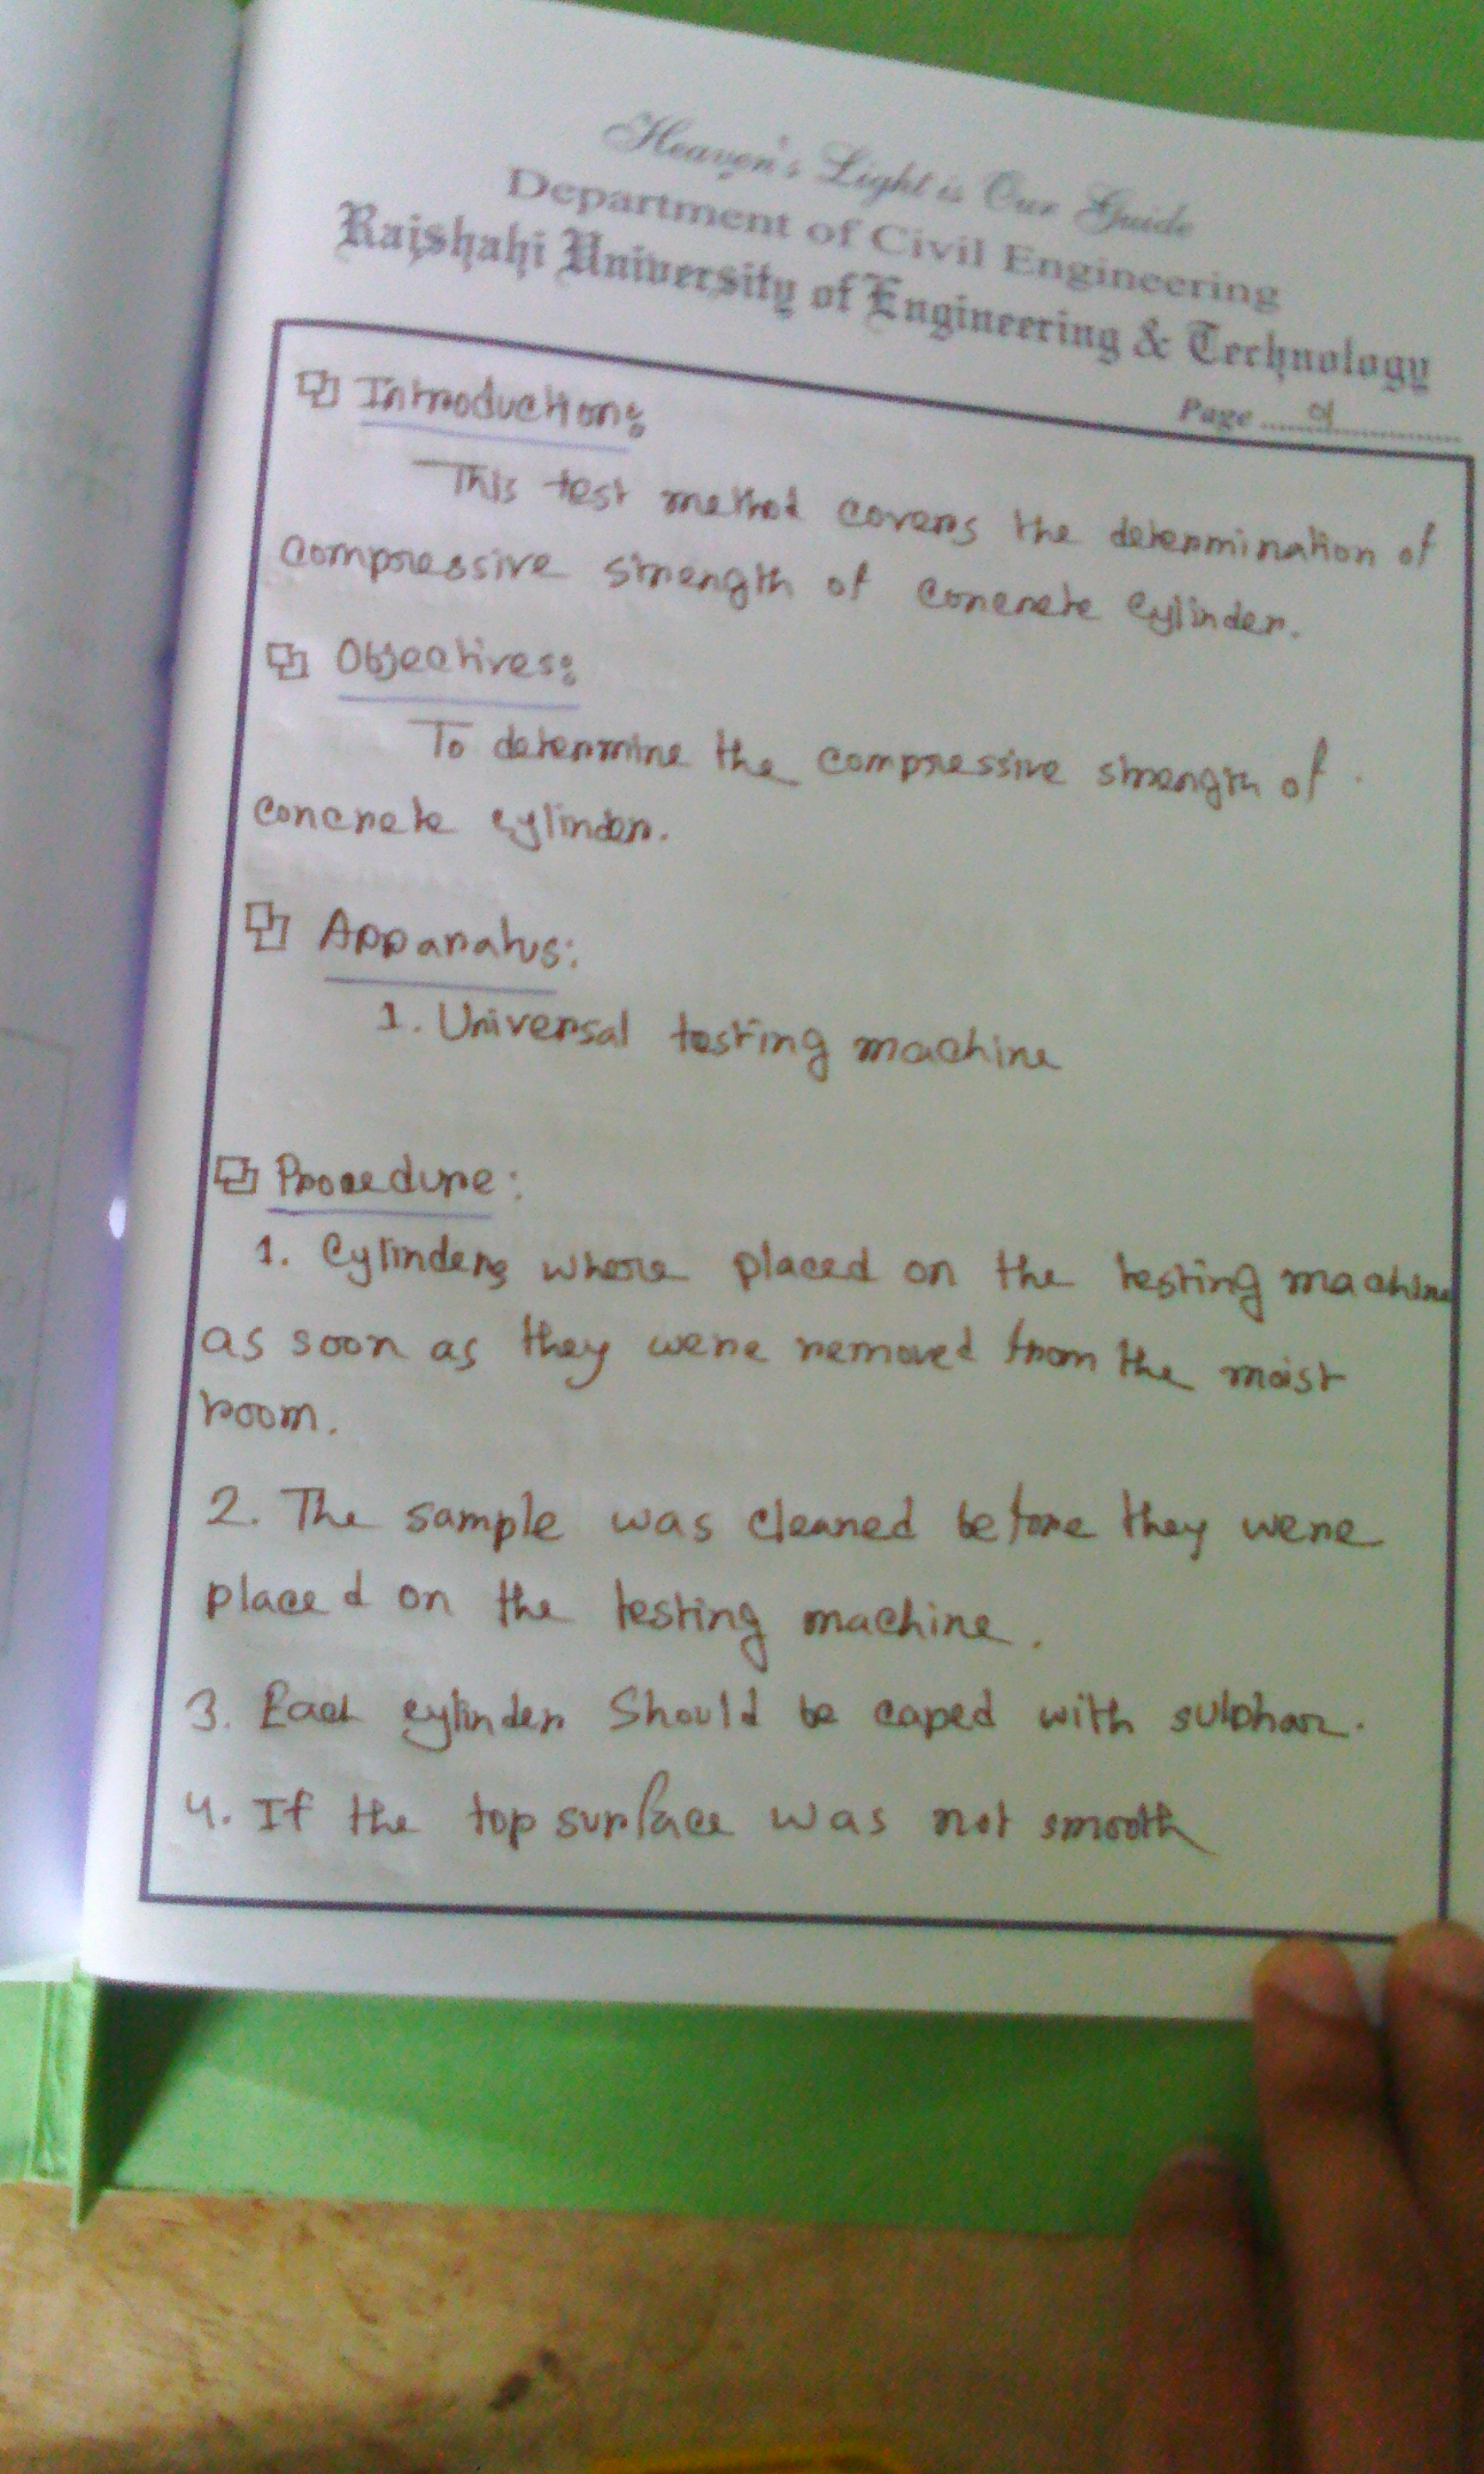 Heaven's Light is Our Guide
Department of Civil Engineering
Rajshahi University of Engineering & Technology
Page ........01........
Introduction:
This test method covers the determination of
compressive strength of concrete cylinder.
Objectives:
To determine the compressive strength of
concrete cylinder.
Apparatus:
1. Universal testing machine
Procedure:
1. Cylinders where placed on the testing machine
as soon as they were removed from the moist
room.
2. The sample was cleaned before they were
placed on the testing machine.
3. Each cylinder Should be caped with sulphar.
4. If the top surface was not smooth